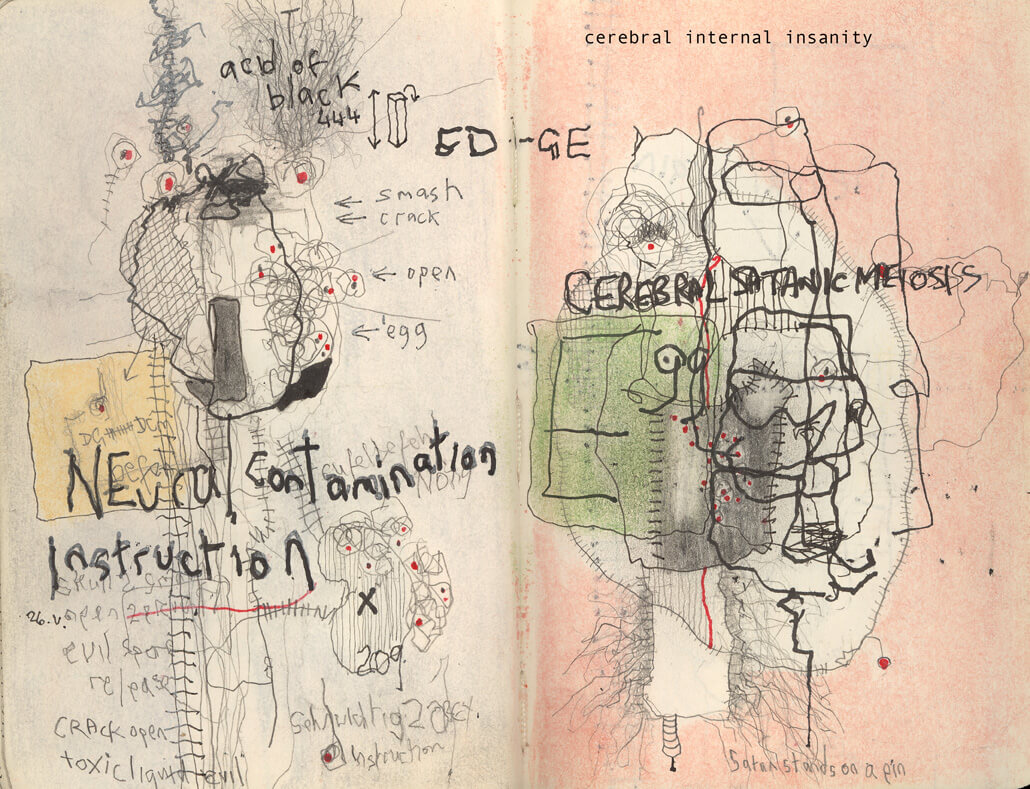 acid of
black
444
ED-GE
smash
crack
open
egg
DG DG
NEural Contamination
Instruction
26.v. open
evil spore
release
CRACK open
toxic liquid evil
X
209.
Schuldig 2 act.
Instruction
cerebral internal insanity
CEREBRAL SATANIC MEIOSIS
Satan stands on a pin